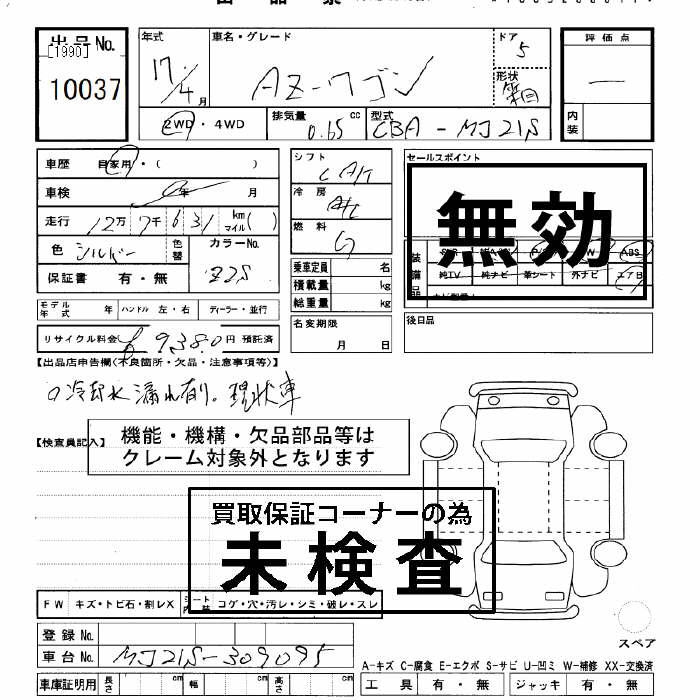 出品No.
[1990]
10037
年式
17/4 月
車名・グレード
AZ-ワゴン
ドア
5
形状
評価点
内装
2WD・4WD
排気量 0.65 cc
型式 CBA-MJ21S
車歴 自家用・( )
車検 年 月
走行 12万 7千 631 km マイル( )
色 シルバー
色替
カラーNo.
Z2S
保証書 有・無
モデル年式 年 ハンドル 左・右 ディーラー・並行
リサイクル料金 9,380円 預託済
シフト
冷房
A/C
燃料
G
乗車定員 名
積載量 kg
総重量 kg
名変期限
月 日
セールスポイント
無効
装備品
ABS
純TV 純ナビ 革シート 外ナビ エアB
後日品
【出品店申告欄(不良箇所・欠品・注意事項等)】
冷却水漏れ有り。現状車
【検査員記入】
機能・機構・欠品部品等は
クレーム対象外となります
買取保証コーナーの為
未検査
FW キズ・トビ石・割レX
シート内装 コゲ・穴・汚レ・シミ・破レ・スレ
登録No.
車台No. MJ21S-309095
車庫証明用 長さ cm 幅 cm 高さ cm
スペア
A-キズ C-腐食 E-エクボ S-サビ U-凹ミ W-補修 XX-交換済
工具 有・無 ジャッキ 有・無